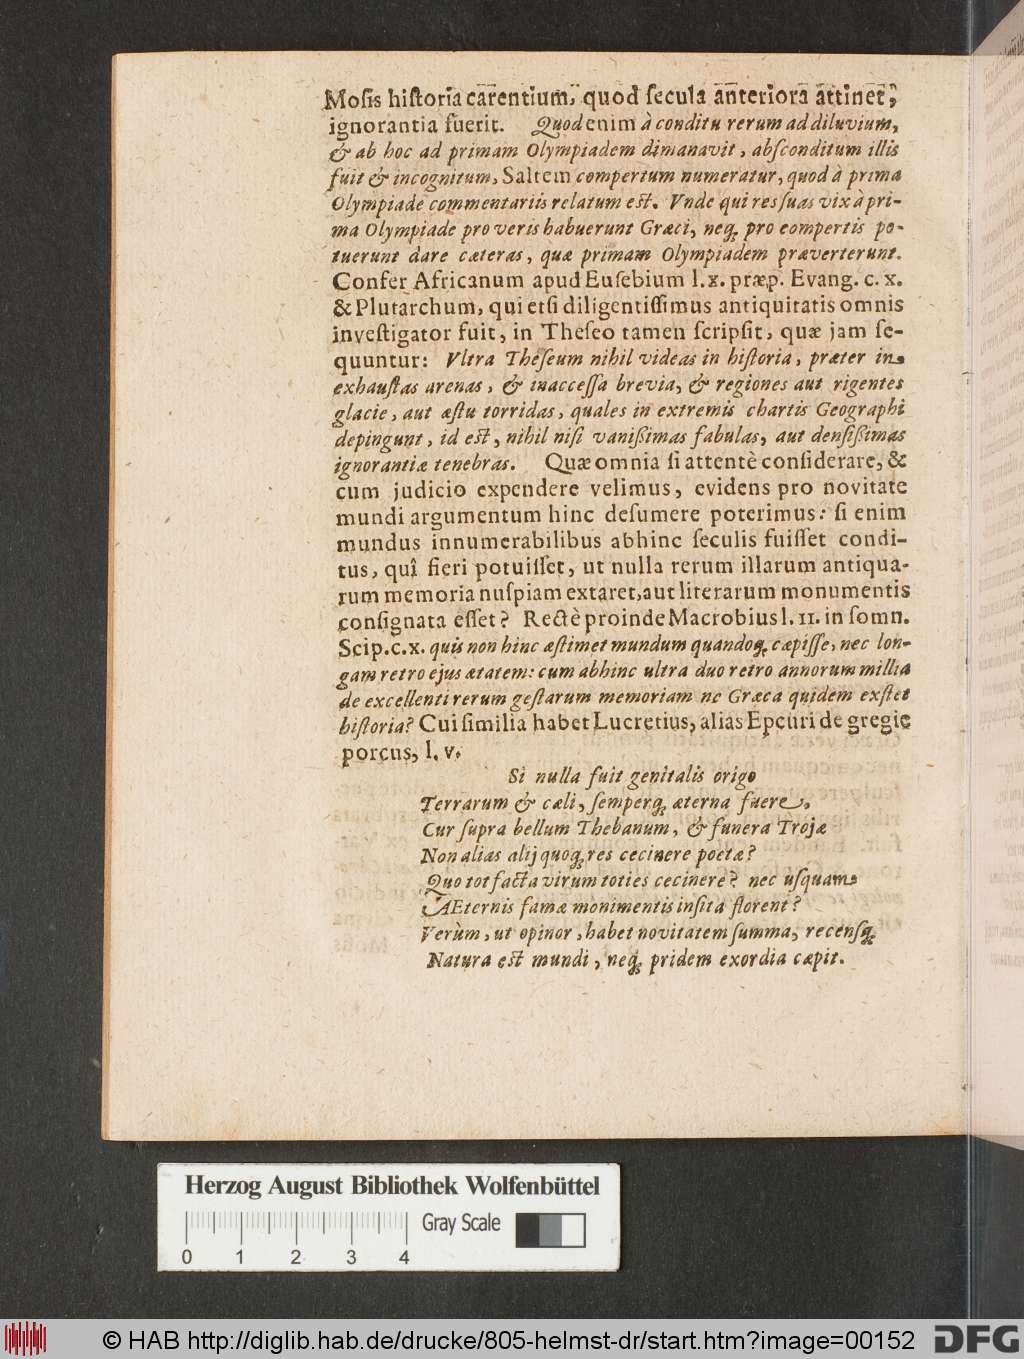 Moſis hiſtoria carentium, quod ſecula anteriora attinet,
ignorantia fuerit. Quod enim à conditu rerum ad diluvium,
& ab hoc ad primam Olympiadem dimanavit, abſconditum illis
fuit & incognitum, Saltem compertum numeratur, quod à prima
Olympiade commentariis relatum eſt. Vnde qui res ſuas vix à pri-
ma Olympiade pro veris habuerunt Græci, neq; pro eompertis po-
tuerunt dare cæteras, quæ primam Olympiadem præverterunt.
Confer Africanum apud Euſebium l. x. præp. Evang. c. x.
& Plutarchum, qui etſi diligentiſſimus antiquitatis omnis
inveſtigator fuit, in Theſeo tamen ſcripſit, quæ jam ſe-
quuntur: Vltra Theſeum nihil videas in hiſtoria, præter in-
exhauſtas arenas, & inacceſſa brevia, & regiones aut rigentes
glacie, aut æſtu torridas, quales in extremis chartis Geographi
depingunt, id eſt, nihil niſi vanißimas fabulas, aut denſißimas
ignorantiæ tenebras. Quæ omnia ſi attentè conſiderare, &
cum judicio expendere velimus, evidens pro novitate
mundi argumentum hinc deſumere poterimus: ſi enim
mundus innumerabilibus abhinc ſeculis fuiſſet condi-
tus, quî fieri potuiſſet, ut nulla rerum illarum antiqua-
rum memoria nuſpiam extaret, aut literarum monumentis
conſignata eſſet? Rectè proinde Macrobius l. II. in ſomn.
Scip. c. x. quis non hinc æſtimet mundum quandoq; cæpiſſe, nec lon-
gam retro ejus ætatem: cum abhinc ultra duo retro annorum millia
de excellenti rerum geſtarum memoriam ne Græca quidem exſtet
hiſtoria? Cui ſimilia habet Lucretius, alias Epcuri de gregie
porcus, l. v.
Si nulla fuit genitalis origo
Terrarum & cæli, ſemperq; æterna fuere,
Cur ſupra bellum Thebanum, & funera Trojæ
Non alias alij quoq; res cecinere poetæ?
Quo tot facta virum toties cecinere? nec uſquam
AEternis famæ monimentis inſita florent?
Verùm, ut opinor, habet novitatem ſumma, recensq;
Natura eſt mundi, neq; pridem exordia cæpit.
Herzog August Bibliothek Wolfenbüttel
Gray Scale
0 1 2 3 4
© HAB http://diglib.hab.de/drucke/805-helmst-dr/start.htm?image=00152
DFG